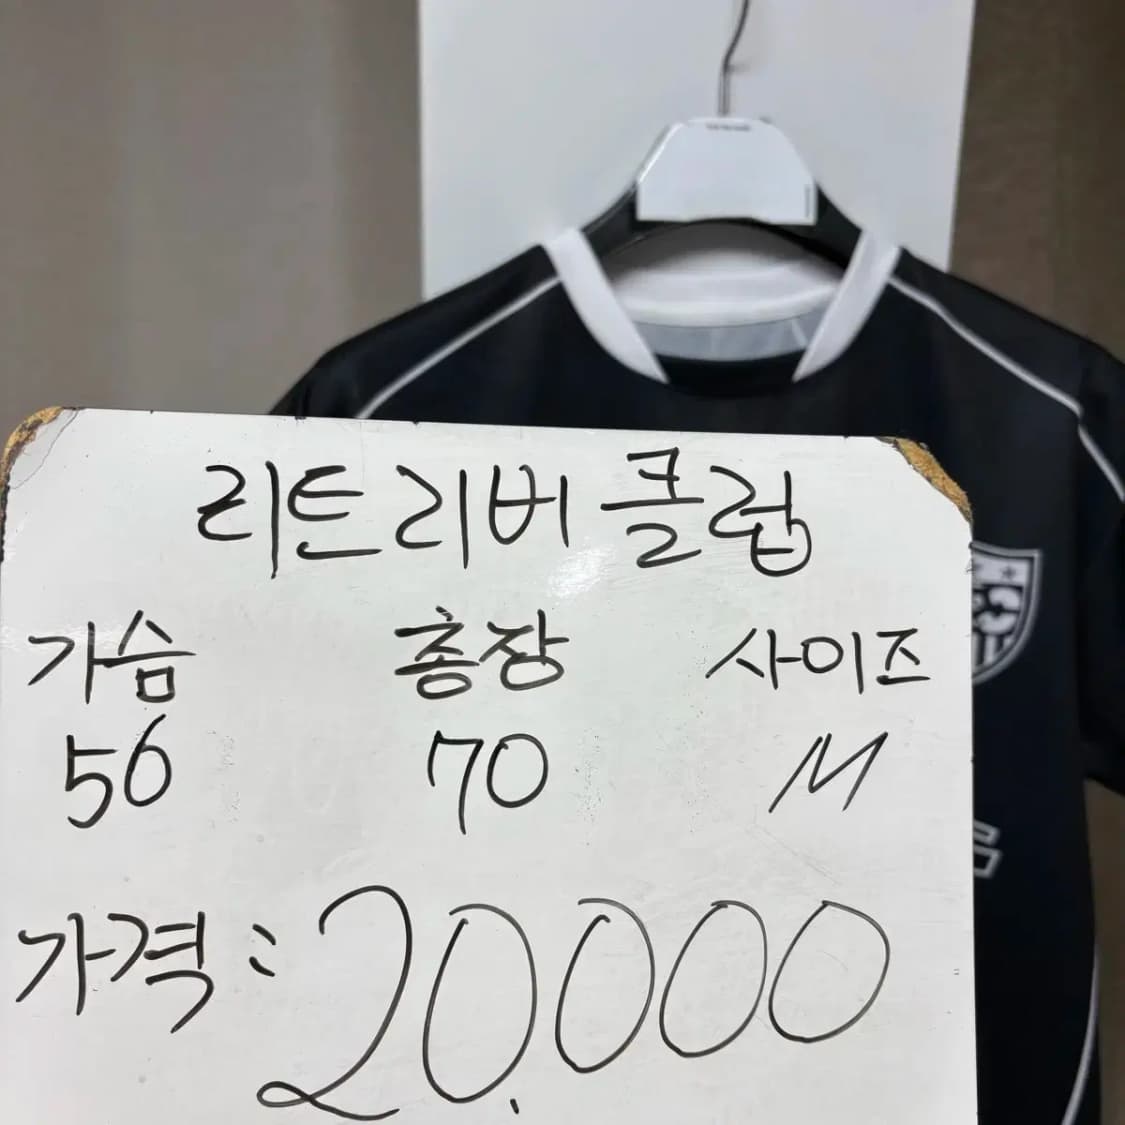 리트리버 클럽
가슴 총장 사이즈
56 70 M
가격: 20,000